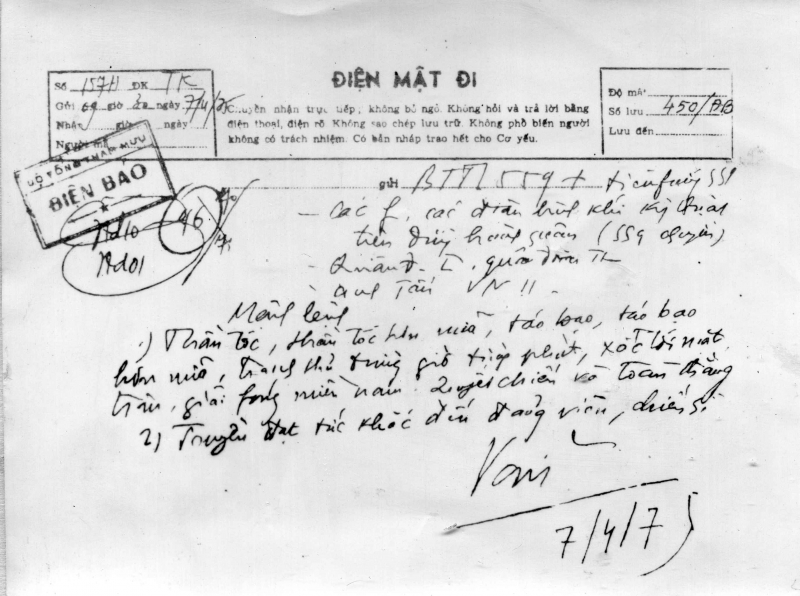 ĐIỆN MẬT ĐI
Số 157H ĐK TK
Gửi 09 giờ ngày 7/4/75
Nhận giờ ngày
Người mã
Chuyển nhận trực tiếp; không bỏ ngỏ. Không hỏi và trả lời bằng
điện thoại, điện rõ. Không sao chép lưu trữ. Không phổ biến người
không có trách nhiệm. Có bản nháp trao hết cho Cơ yếu.
Độ mật
Số lưu 450/ĐB
Lưu đến
BỘ TỔNG THAM MƯU
ĐIỆN BÁO
46
gửi BTTL 559 +
- Các f, các đoàn binh khí kỹ thuật
trên đường hành quân (559 chuyển)
VN
Mệnh lệnh
1) Thần tốc, thần tốc hơn nữa, táo bạo, táo bạo
hơn nữa, tranh thủ từng giờ từng phút, xốc tới mặt
trận, giải fóng miền nam. Quyết chiến và toàn thắng
2) Truyền đạt tức khắc đến đảng viên, chiến sĩ
Văn
7/4/75